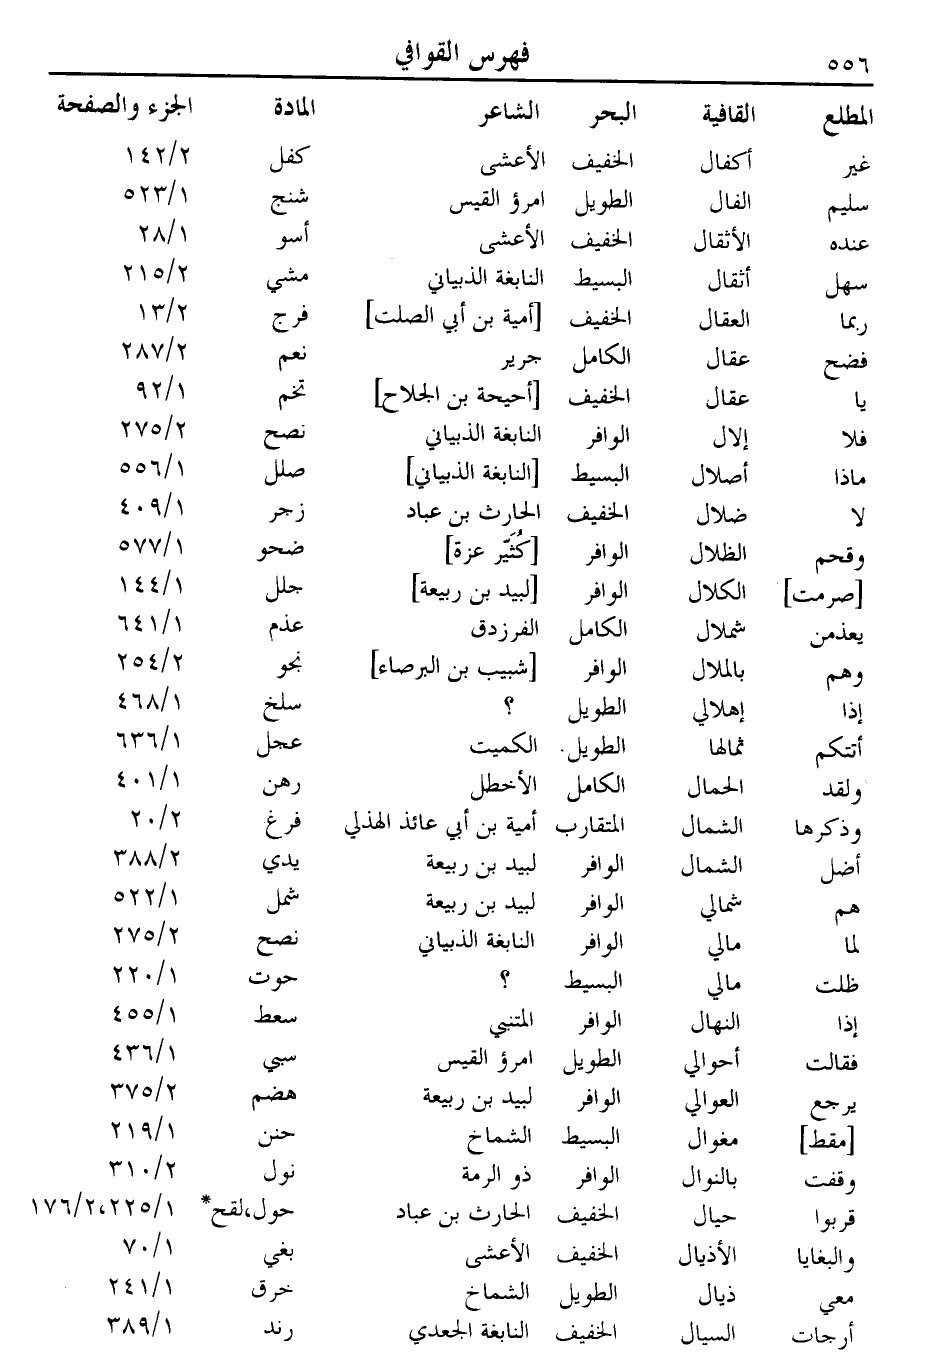 ٥٥٦ فهرس القوافي
المطلع القافية البحر الشاعر المادة الجزء والصفحة
غير أكفال الخفيف الأعشى كفل ١٤٢/٢
سليم الفال الطويل امرؤ القيس شنج ٥٢٣/١
عنده الأثقال الخفيف الأعشى أسو ٢٨/١
سهل أثقال البسيط النابغة الذبياني مشي ٢١٥/٢
ربما العقال الخفيف [أمية بن أبي الصلت] فرج ١٣/٢
فضح عقال الكامل جرير نعم ٢٨٧/٢
يا عقال الخفيف [أحيحة بن الجلاح] تخم ٩٢/١
فلا إلال الوافر النابغة الذبياني نصح ٢٧٥/٢
ماذا أصلال البسيط [النابغة الذبياني] صلل ٥٥٦/١
لا ضلال الخفيف الحارث بن عباد زجر ٤٠٩/١
وقحم الظلال الوافر [كُثَيّر عزة] ضحو ٥٧٧/١
[صرمت] الكلال الوافر [لبيد بن ربيعة] جلل ١٤٤/١
يعذمن شملال الكامل الفرزدق عذم ٦٤١/١
وهم بالملال الوافر [شبيب بن البرصاء] نحو ٢٥٤/٢
إذا إهلالي الطويل ؟ سلخ ٤٦٨/١
أتتكم ثمالها الطويل الكميت عجل ٦٣٦/١
ولقد الحمال الكامل الأخطل رهن ٤٠١/١
وذكرها الشمال المتقارب أمية بن أبي عائذ الهذلي فرغ ٢٠/٢
أضل الشمال الوافر لبيد بن ربيعة يدي ٣٨٨/٢
هم شمالي الوافر لبيد بن ربيعة شمل ٥٢٢/١
لما مالي الوافر النابغة الذبياني نصح ٢٧٥/٢
ظلت مالي البسيط ؟ حوت ٢٢٠/١
إذا النهال الوافر المتنبي سعط ٤٥٥/١
فقالت أحوالي الطويل امرؤ القيس سبي ٤٣٦/١
يرجع العوالي الوافر لبيد بن ربيعة هضم ٣٧٥/٢
[مقط] مغوال البسيط الشماخ حنن ٢١٩/١
وقفت بالنوال الوافر ذو الرمة نول ٣١٠/٢
قربوا حيال الخفيف الحارث بن عباد حول،لقح* ١٧٦/٢،٢٢٥/١
والبغايا الأذيال الخفيف الأعشى بغي ٧٠/١
معي ذيال الطويل الشماخ خرق ٢٤١/١
أرجات السيال الخفيف النابغة الجعدي رند ٣٨٩/١